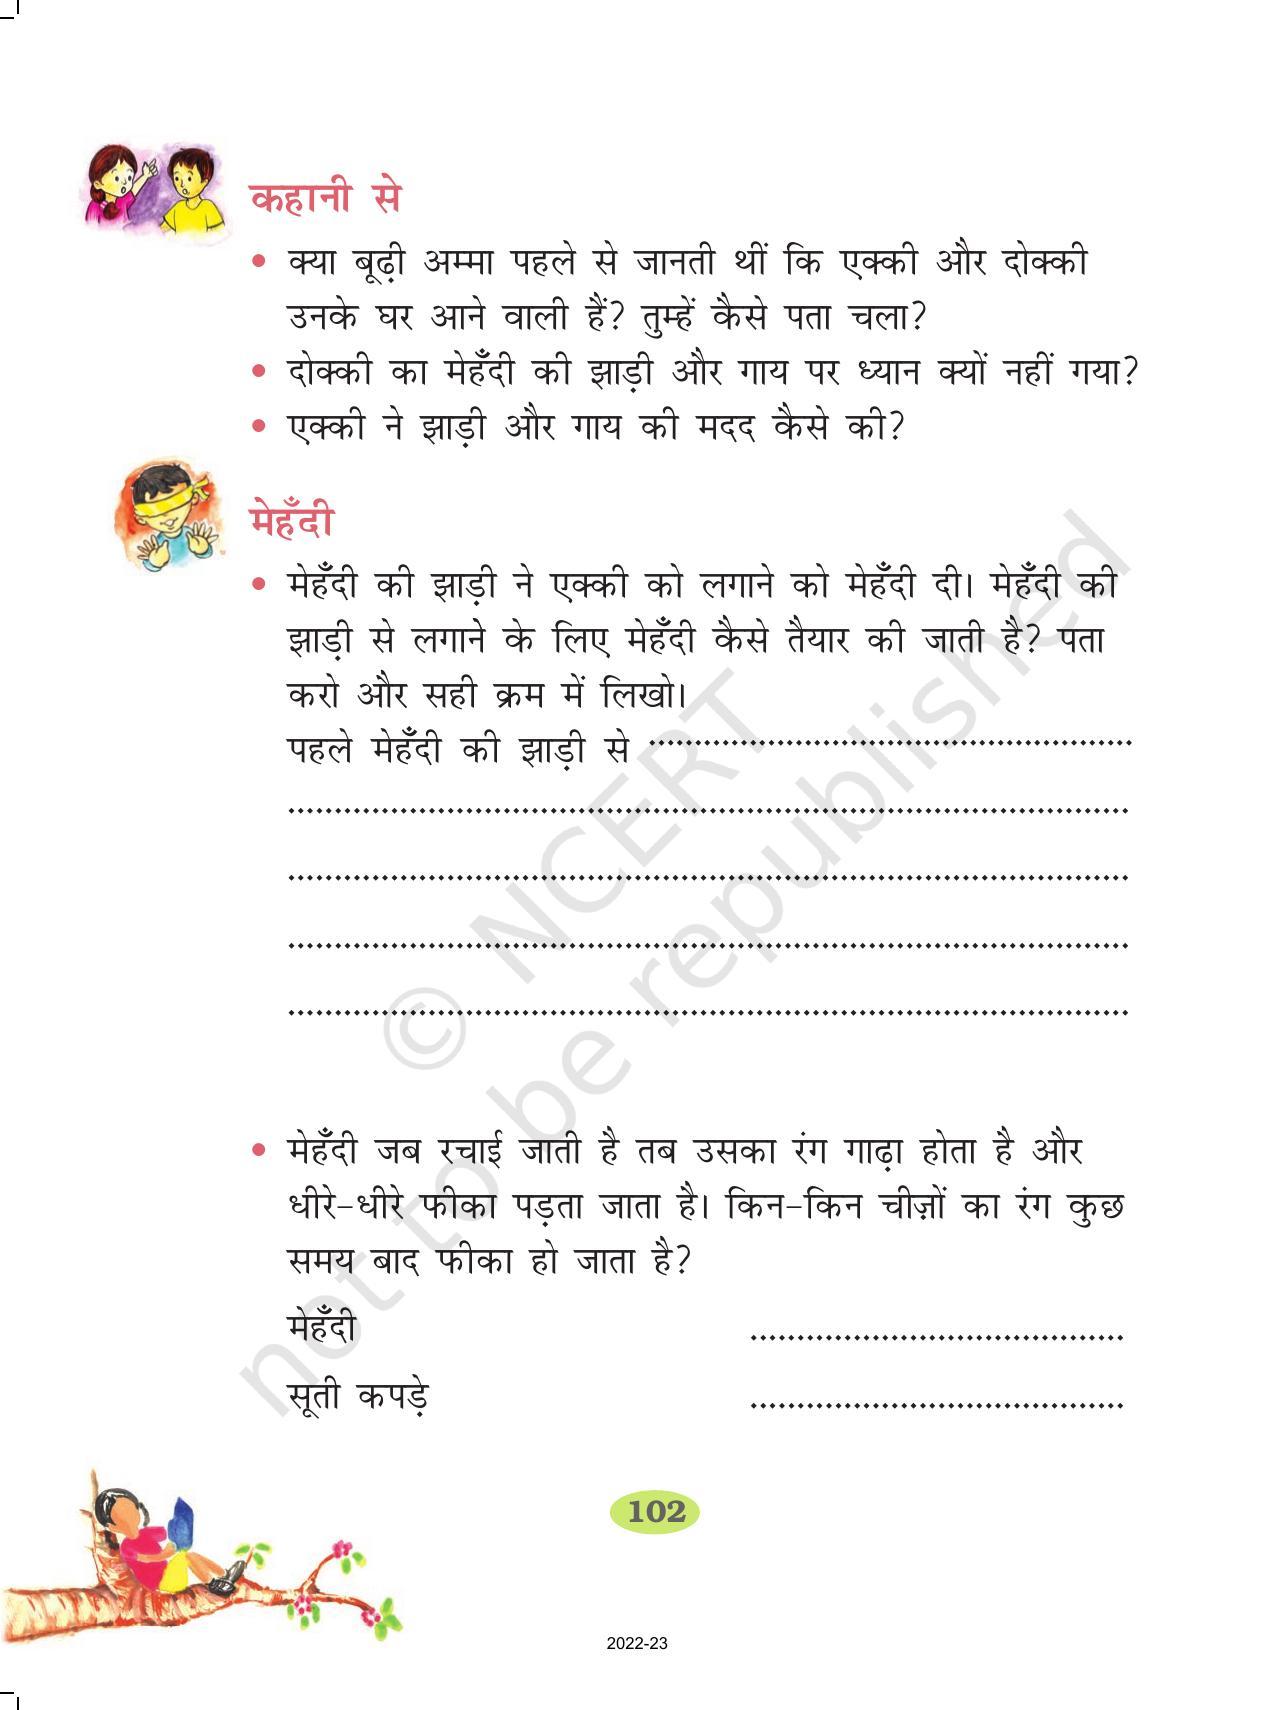 कहानी से
• क्या बूढ़ी अम्मा पहले से जानती थीं कि एक्की और दोक्की
उनके घर आने वाली हैं? तुम्हें कैसे पता चला?
• दोक्की का मेहँदी की झाड़ी और गाय पर ध्यान क्यों नहीं गया?
• एक्की ने झाड़ी और गाय की मदद कैसे की?
मेहँदी
• मेहँदी की झाड़ी ने एक्की को लगाने को मेहँदी दी। मेहँदी की
झाड़ी से लगाने के लिए मेहँदी कैसे तैयार की जाती है? पता
करो और सही क्रम में लिखो।
पहले मेहँदी की झाड़ी से
• मेहँदी जब रचाई जाती है तब उसका रंग गाढ़ा होता है और
धीरे-धीरे फीका पड़ता जाता है। किन-किन चीज़ों का रंग कुछ
समय बाद फीका हो जाता है?
मेहँदी
सूती कपड़े
© NCERT
not to be republished
102
2022-23